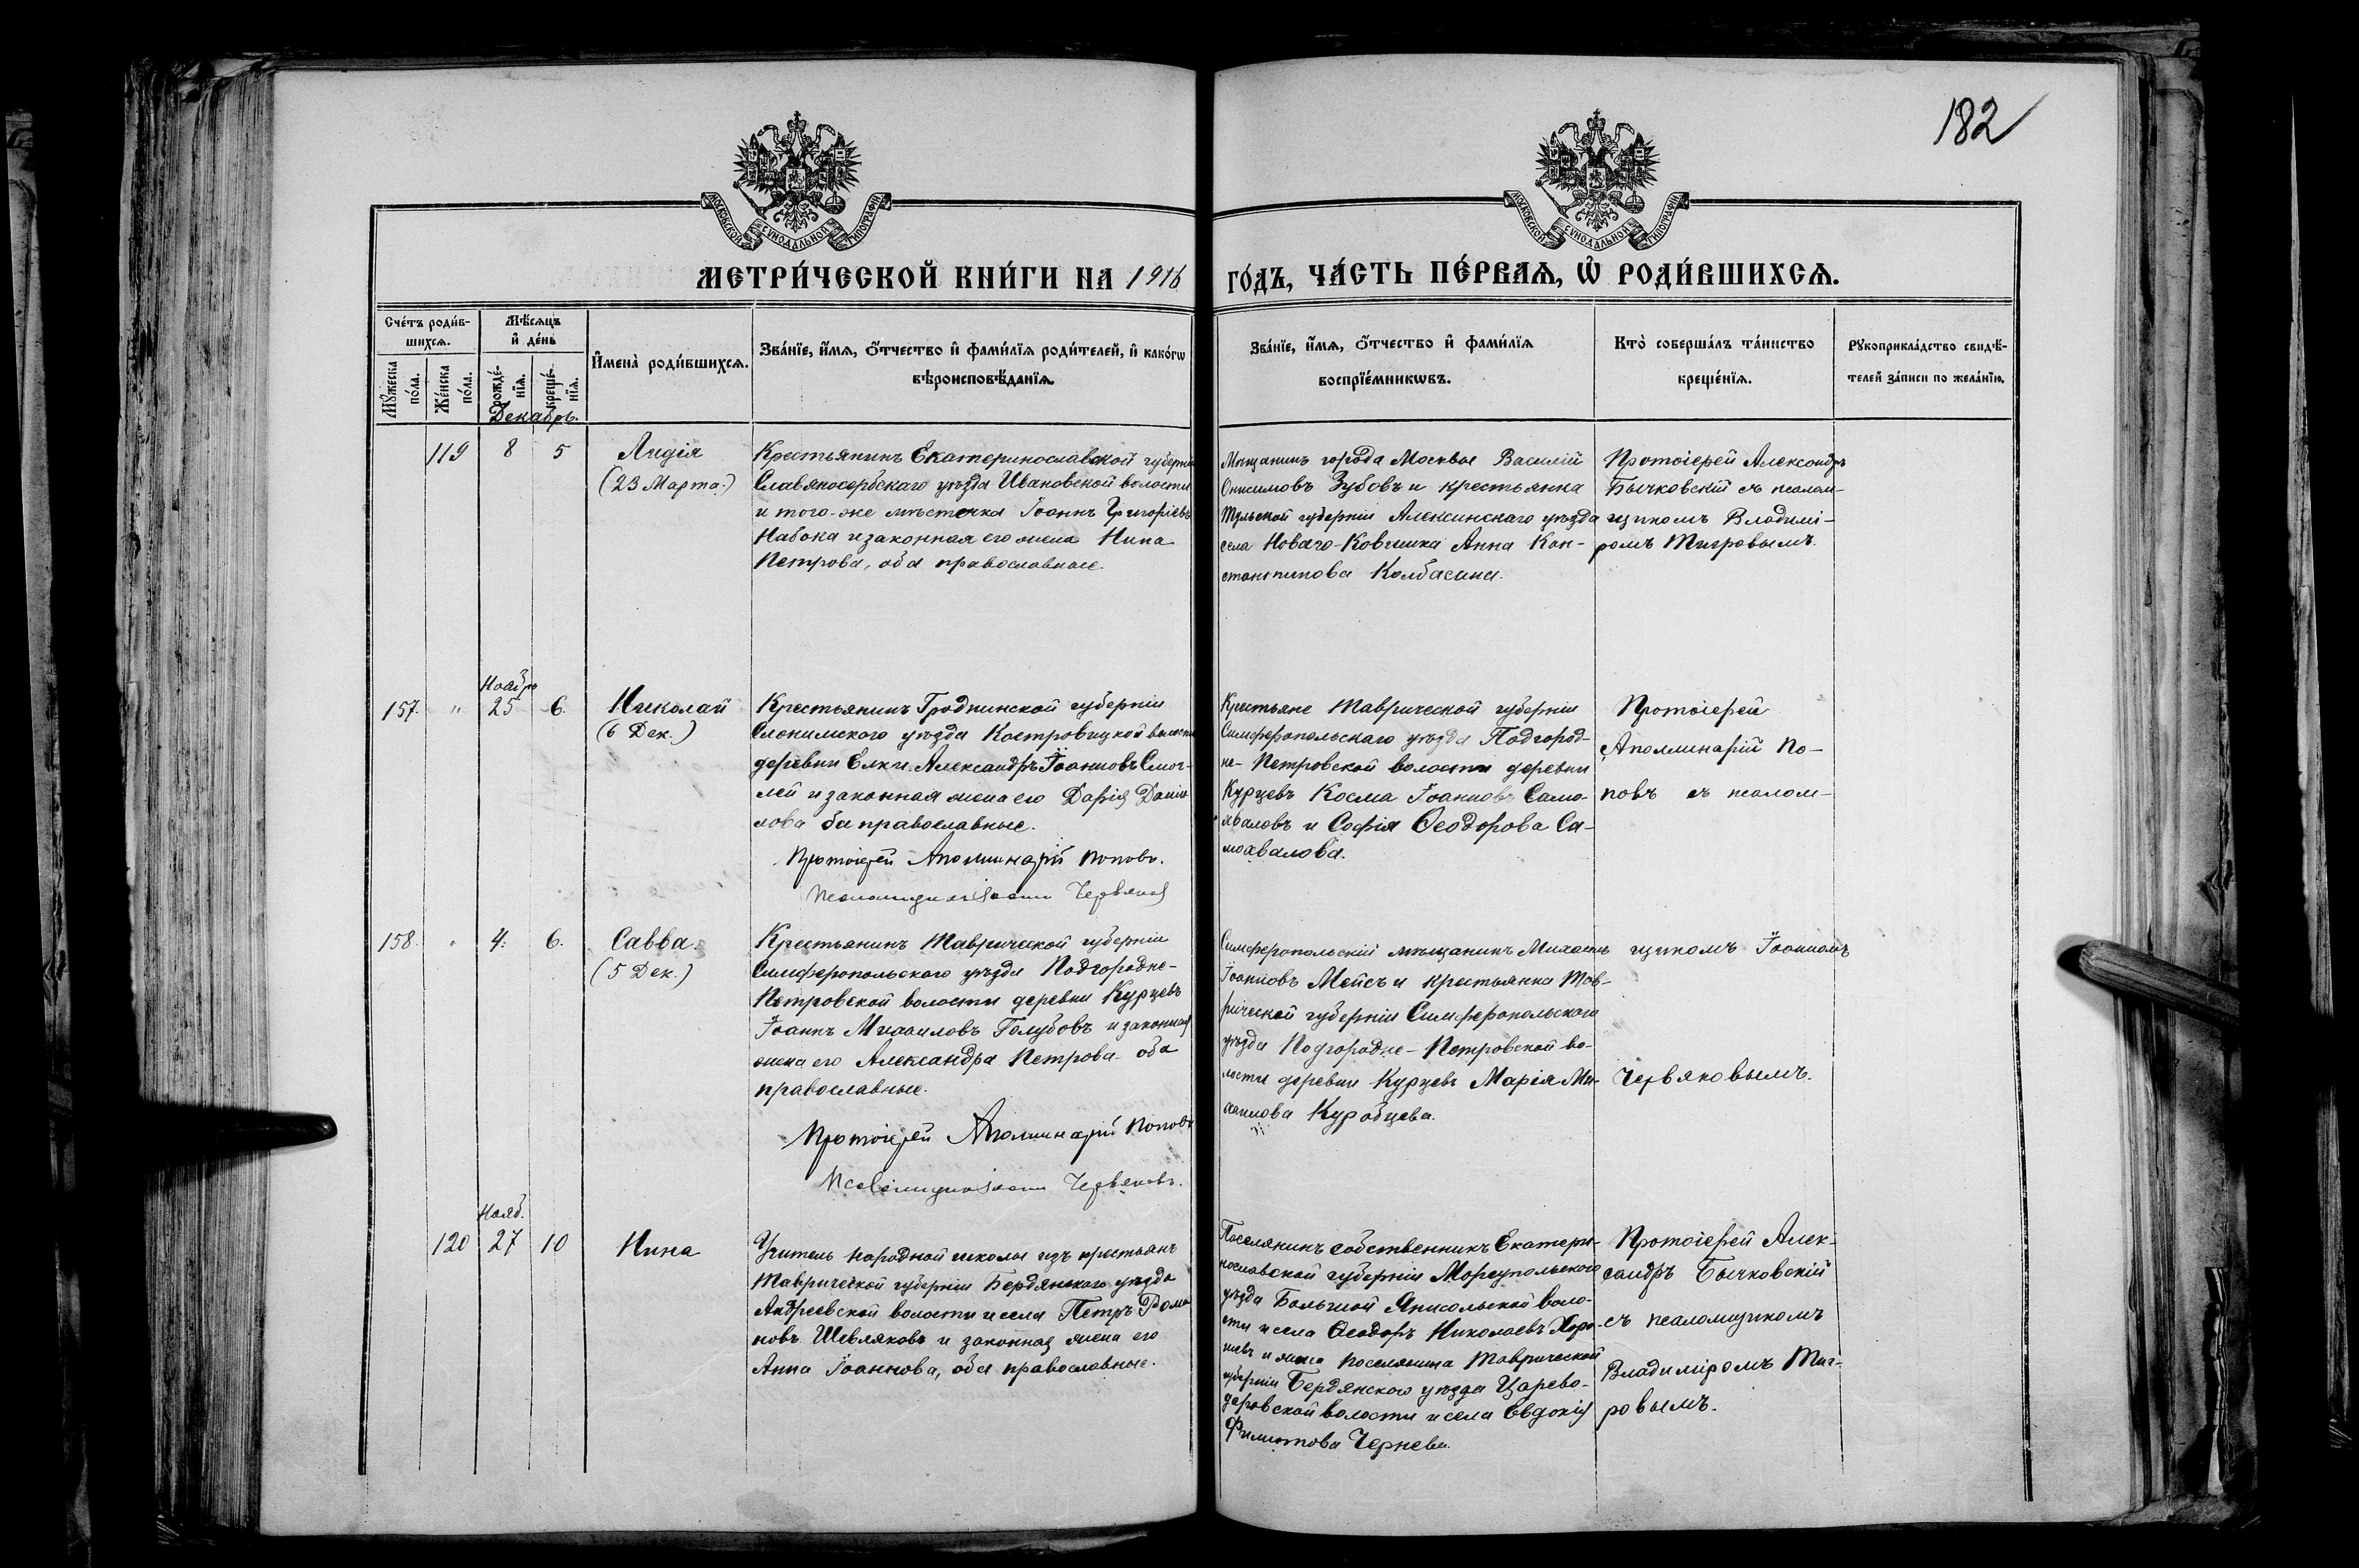 182
МОСКОВСКОЙ СѴНОДАЛЬНОЙ ТИПОГРАФІИ
МОСКОВСКОЙ СѴНОДАЛЬНОЙ ТИПОГРАФІИ
МЕТРИ́ЧЕСКОЙ КНИ́ГИ НА 1916 ГО́ДЪ, ЧА́СТЬ ПЕ́РВАѦ, Ѡ҆ РОДИ́ВШИХСѦ.
Сче́тъ роди́в-
шихсѧ.
Мꙋ́жеска
по́ла.
Же́нска
по́ла.
Мѣ́сѧцъ
и҆ де́нь
рожде́-
нїѧ.
креще́-
нїѧ.
И҆мена̀ роди́вшихсѧ.
Зва́нїе, и҆́мѧ, ѻ҆́тчество и҆ фами́лїѧ роди́телей, и҆ како́гѡ
вѣроисповѣ́данїѧ.
Зва́нїе, и҆́мѧ, ѻ҆́тчество и҆ фами́лїѧ
воспрїе́мникѡвъ.
Кто̀ соверша́лъ та́инство
креще́нїѧ.
Рꙋкоприкла́дство свидѣ́-
телей за́писи по жела́нїю.
Декабрь.
119
8
5
Лидія
(23 Марта.)
Крестьянинъ Екатеринославской губерніи
Славяносербскаго уѣзда Ивановской волости
и того-же мѣстечка Іоаннъ Григоріевъ
Набока и законная его жена Нина
Петрова, оба православные.
Мѣщанинъ города Москвы Василій
Онисимовъ Зубовъ и крестьянка
Тульской губерніи Алексинскаго уѣзда
села Новаго-Ковшика Анна Кон-
стантинова Колбасина.
Протоіерей Александръ
Бычковскій съ псалом-
щикомъ Владимі-
ромъ Тигровымъ.
157.
"
Ноябрь
25
6.
Николай
(6 Дек.)
Крестьянинъ Гродненской губерніи
Слонимскаго уѣзда Костровицкой волости
деревни Елки Александръ Іоанновъ Смог-
лей и законная жена его Дарія Даніи
лова оба православные.
Протоіерей Аполлинарій Поповъ.
Псаломщикъ Іоаннъ Червяковъ
Крестьяне Таврической губерніи
Симферопольскаго уѣзда Подгород-
не-Петровской волости деревни
Курцевъ Косма Іоанновъ Само-
хваловъ и Софія Ѳеодорова Са-
мохвалова.
Протоіерей
Аполлинарій По-
повъ съ псалом-
158.
4.
6.
Савва.
(5 Дек.)
Крестьянинъ Таврической губерніи
Симферопольскаго уѣзда Подгородне-
Петровской волости деревни Курцевъ
Іоаннъ Михаиловъ Голубовъ и законная
жена его Александра Петрова оба
православные.
Протоіерей Аполлинарій Поповъ
Псаломщикъ Іоаннъ Червяковъ.
Симферопольскій мѣщанинъ Михаилъ
Іоанновъ Мейсъ и крестьянка Тав-
рической губерніи Симферопольскаго
уѣзда Подгородне-Петровской во-
лости деревни Курцевъ Марія Ми-
хаилова Куробцева.
щикомъ Іоанномъ
Червяковымъ.
120
Нояб.
27
10
Нина
Учитель народной школы изъ крестьянъ
Таврической губерніи Бердянскаго уѣзда
Андреевской волости и села Петръ Рома
новъ Шевляковъ и законная жена его
Анна Іоаннова, оба православные.
Поселянинъ собственникъ Екатери-
нославской губерніи Моріупольскаго
уѣзда Большой Янисольской воло-
сти и села Ѳеодоръ Николаевъ
и поселянина Таврической
губерніи Бердянскаго уѣзда Царево-
даровской волости и села Евдокія
Филиппова Чернева.
Протоіерей Алек-
сандръ Бычковскій
съ псаломщикомъ
Владиміромъ Тиг-
ровымъ.